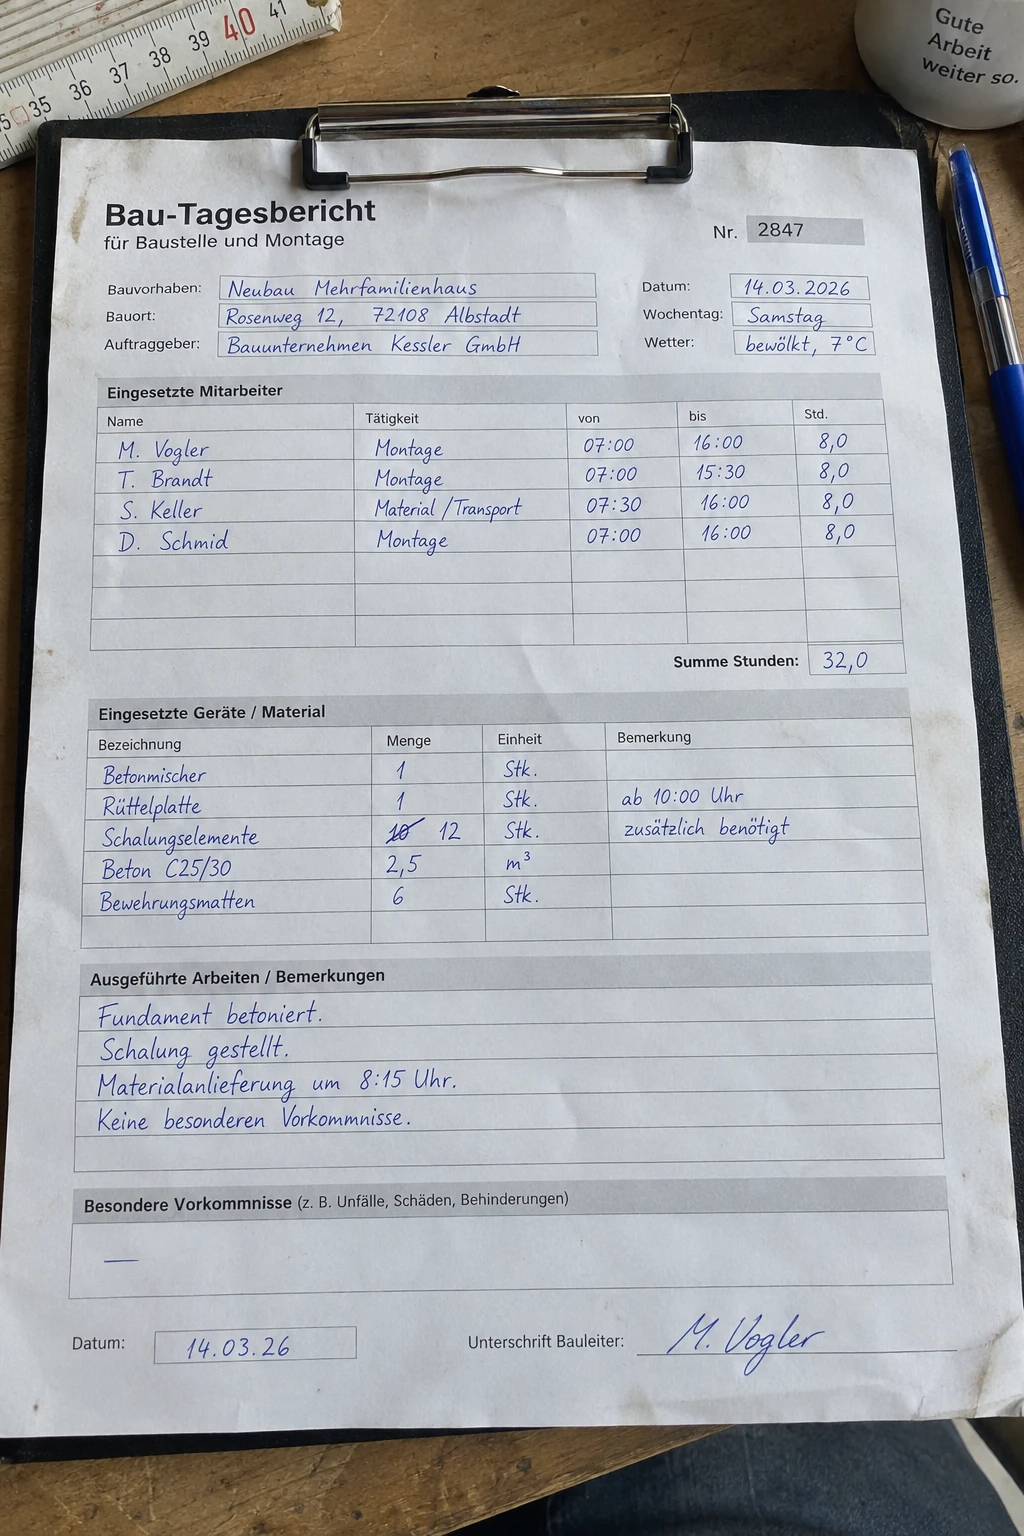 35 36 37 38 39 40 41
Gute
Arbeit
weiter so.
Bau-Tagesbericht
für Baustelle und Montage
Nr. 2847
Bauvorhaben: Neubau Mehrfamilienhaus Datum: 14.03.2026
Bauort: Rosenweg 12, 72108 Albstadt Wochentag: Samstag
Auftraggeber: Bauunternehmen Kessler GmbH Wetter: bewölkt, 7°C
Eingesetzte Mitarbeiter
Name Tätigkeit von bis Std.
M. Vogler Montage 07:00 16:00 8,0
T. Brandt Montage 07:00 15:30 8,0
S. Keller Material / Transport 07:30 16:00 8,0
D. Schmid Montage 07:00 16:00 8,0
Summe Stunden: 32,0
Eingesetzte Geräte / Material
Bezeichnung Menge Einheit Bemerkung
Betonmischer 1 Stk.
Rüttelplatte 1 Stk. ab 10:00 Uhr
Schalungselemente 10 12 Stk. zusätzlich benötigt
Beton C25/30 2,5 m³
Bewehrungsmatten 6 Stk.
Ausgeführte Arbeiten / Bemerkungen
Fundament betoniert.
Schalung gestellt.
Materialanlieferung um 8:15 Uhr.
Keine besonderen Vorkommnisse.
Besondere Vorkommnisse (z. B. Unfälle, Schäden, Behinderungen)
—
Datum: 14.03.26 Unterschrift Bauleiter: M. Vogler